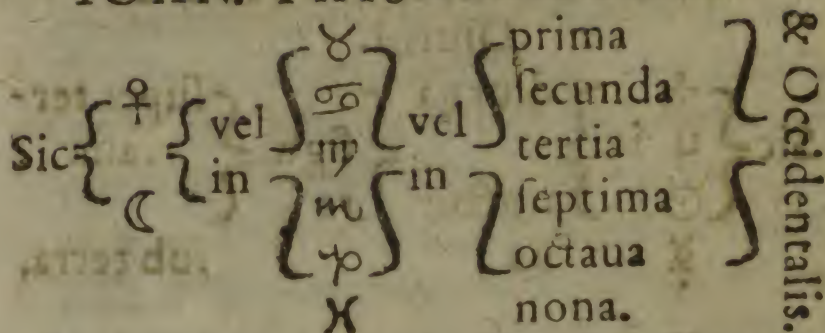 Sic ♀ ☾ vel in ♉ ♋ ♍ ♏ ♑ ♓ vel in
prima
ſecunda
tertia
ſeptima
octaua
nona.
& Occidentalis.